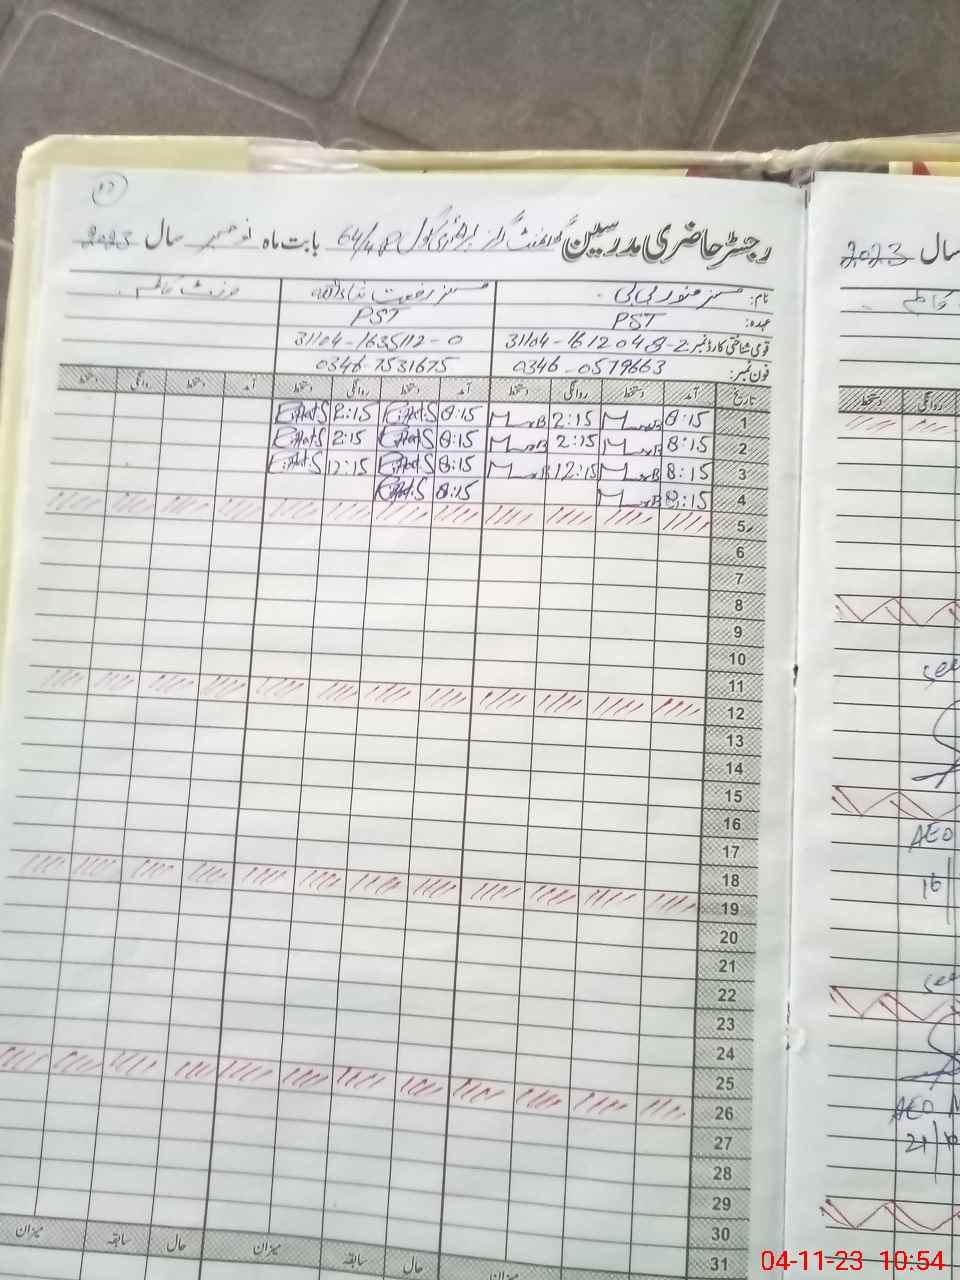 رجسٹر حاضری مدرسین گورنمنٹ گرلز پرائمری سکول 64/4.R بابت ماہ نومبر سال 2023
نام: مسز منور بی بی مسز رفعت
عہدہ: PST PST
قومی شناختی کارڈ نمبر 31104-1612048-2 31104-1635112-0
فون نمبر: 0346-0579663 0346-7531675
تاریخ آمد دستخط روانگی دستخط آمد دستخط روانگی دستخط آمد دستخط روانگی دستخط
1 8:15 2:15 8:15 2:15
2 8:15 2:15 8:15 2:15
3 8:15 12:15 8:15 12:15
4 8:15 8:15
5
6
7
8
9
10
11
12
13
14
15
16
17
18
19
20
21
22
23
24
25
26
27
28
29
30
31
میزان حال سابقہ میزان حال سابقہ میزان
سال 2023
دستخط روانگی
See
AEO
16
See
AEO M
21/
04-11-23 10:54